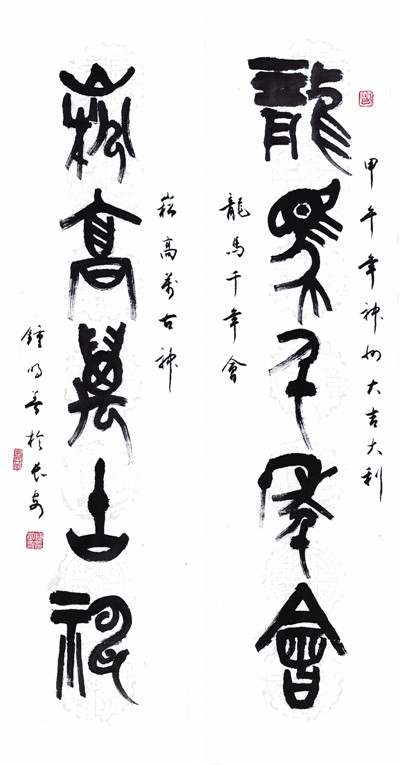 甲午年神州大吉大利
龍馬千年會
龍馬千年會
崧高萬古神
崧高萬古神
鍾明善於長安